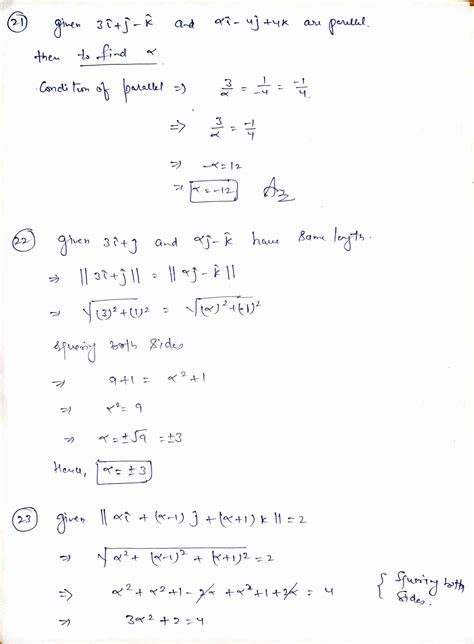 (21) given 3î+ĵ-k̂ and αî-4ĵ+4k are parallel.
then to find α
Condition of parallel => 3/α = 1/-4 = -1/4.
=> 3/α = -1/4
=> -α = 12
=> α = -12 Ans
(22) given 3î+ĵ and αĵ-k̂ have same length.
=> ||3î+ĵ|| = ||αĵ-k̂||
=> √(3)²+(1)² = √(α)²+(-1)²
Squaring both sides
=> 9+1 = α²+1
=> α² = 9
=> α = ±√9 = ±3
Hence, α = ±3
(23) given ||αî + (α-1)ĵ + (α+1)k|| = 2
=> √α² + (α-1)² + (α+1)² = 2
=> α² + α² + 1 - 2α + α² + 1 + 2α = 4 { Squaring both
sides.
=> 3α² + 2 = 4